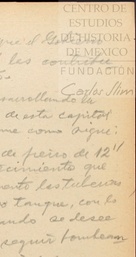 CENTRO DE
ESTUDIOS
DE HISTORIA
DE MÉXICO
FUNDACIÓN
Carlos Slim
que el
les
desarrollando la
de esta capital
me como sigue:
de fierro de 12"
cimiento que
las tuberias
tanque, con lo
ando se desee
seguir bombean